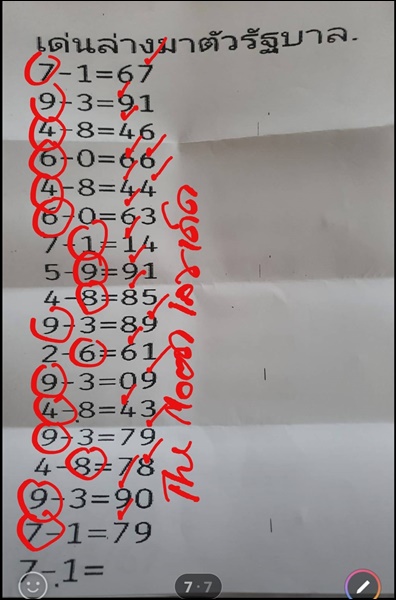 เด่นล่างมาตัวรัฐบาล.
7-1=67
9-3=91
4-8=46
6-0=66
4-8=44
6-0=63
7-1=14
5-9=91
4-8=85
9-3=89
2-6=61
9-3=09
4-8=43
9-3=79
4-8=78
9-3=90
7-1=79
7-1=
The Moon
7·7